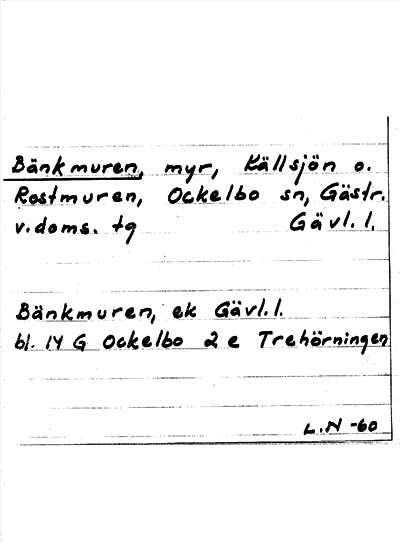 Bänkmuren, myr, Källsjön o.
Rostmuren, Ockelbo sn, Gästr.
v.doms. tg Gävl. l.
Bänkmuren, ek Gävl. l.
bl. 14 G Ockelbo 2 e Trehörningen
L.N -60